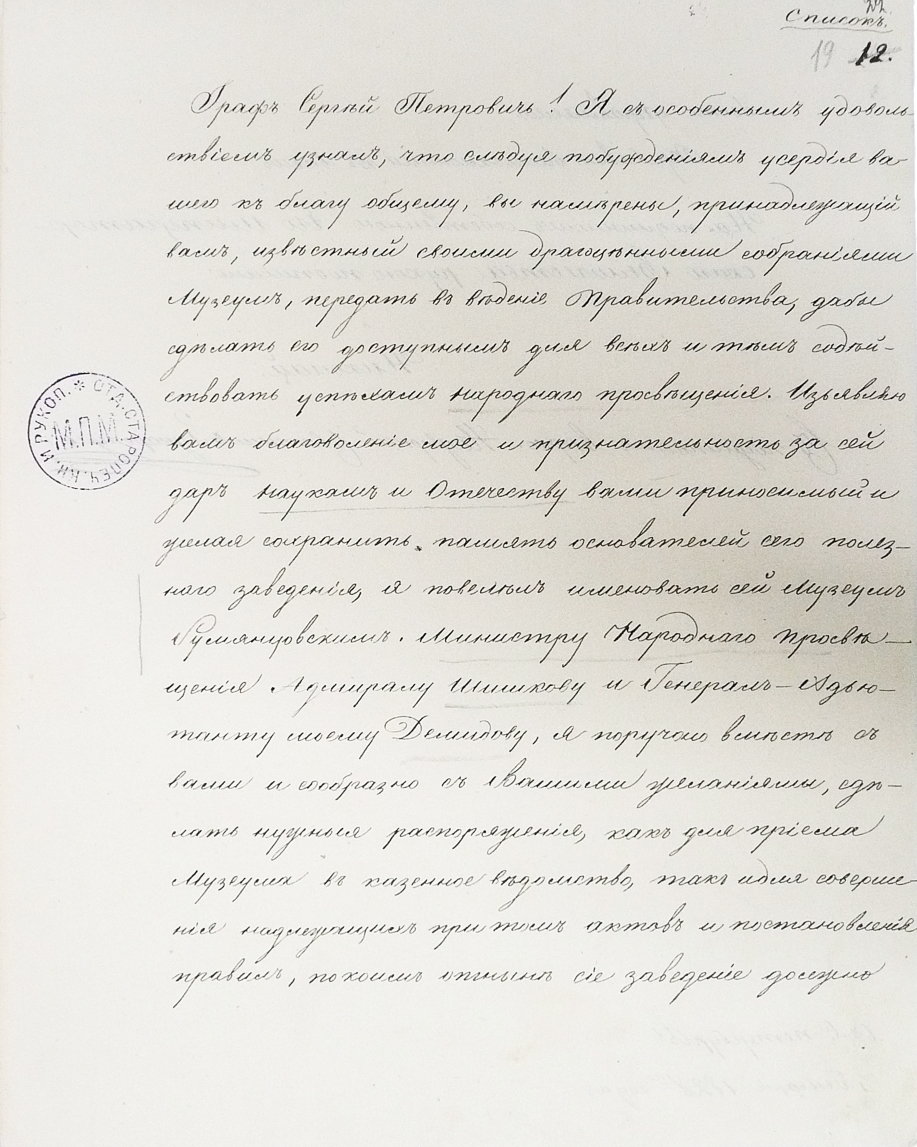 22.
Списокъ.
19 12.
Графъ Сергѣй Петровичъ! Я съ особеннымъ удоволь-
ствіемъ узналъ, что слѣдуя побужденіямъ усердія ва-
шего къ благу общему, вы намѣрены, принадлежащій
вамъ, извѣстный своими драгоцѣнными собраніями
Музеумъ, передать въ вѣденіе Правительства, дабы
сдѣлать его доступнымъ для всѣхъ и тѣмъ содѣй-
ствовать успѣхамъ народнаго просвѣщенія. Изъявляю
вамъ благоволеніе мое и признательность за сей
даръ наукамъ и Отечеству вами приносимый и
желая сохранить память основателей сего полез-
наго заведенія, я повелѣлъ именовать сей Музеумъ
Румянцовскимъ. Министру Народнаго Просвѣ-
щенія Адмиралу Шишкову и Генералъ-Адъю-
танту моему Демидову, я поручаю вмѣстѣ съ
вами и сообразно съ Вашими желаніями, сдѣ-
лать нужныя распоряженія, какъ для пріема
Музеума въ казенное вѣдомство, такъ и для соверше-
нія надлежащихъ при томъ актовъ и постановленія
правилъ, по коимъ отнынѣ сіе заведеніе должно
ОТД. СТАРОПЕЧ. КН. И РУКОП.
М.П.М.